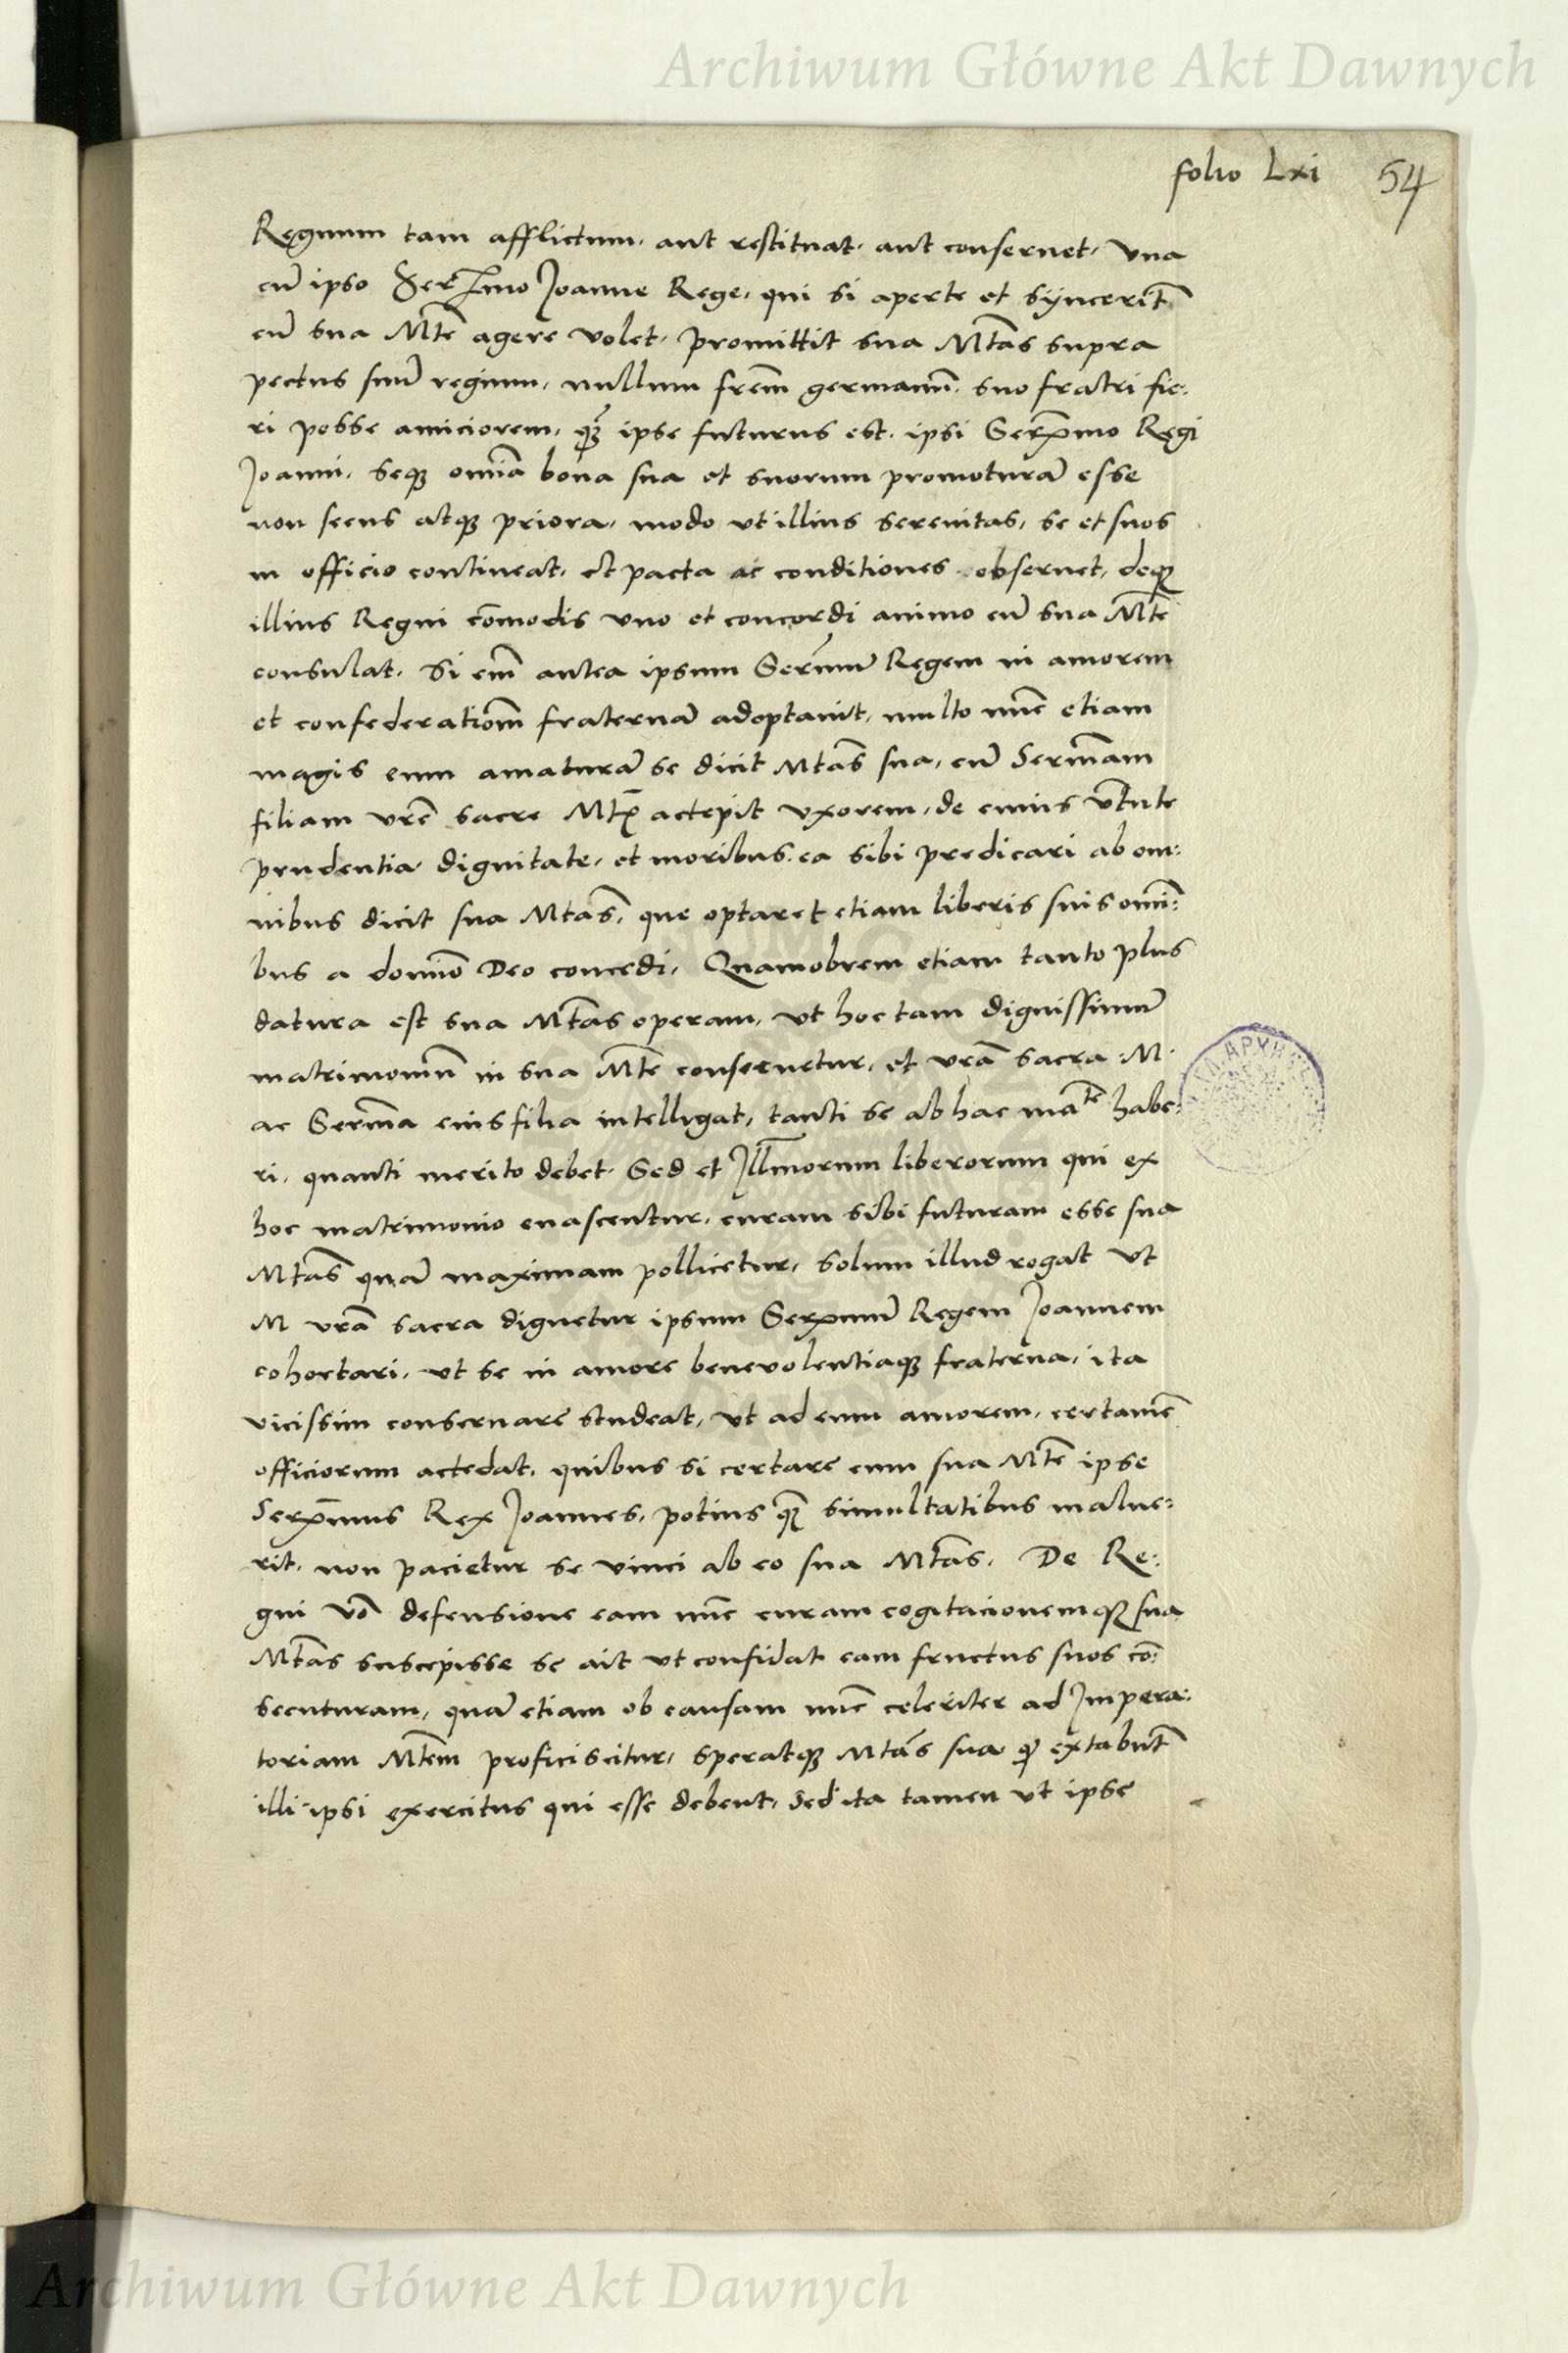 Archiwum Główne Akt Dawnych
folio Lxi 54
Regnum tam afflictum, aut restituat, aut conseruet, vna
cū ipso Ser̄mo Joanne Rege, qui si aperte et syncerit̄
cū sua Mt̄e agere volet, promittit sua Mt̄as supra
pectus suū regium, nullum frēm germanū suo fratri fie:
ri posse amiciorem, q̄ ipse futurus est, ipsi Serx̄mo Regi
Joanni, seqȝ omīa bona sua et suorum promoturā esse
non secus atqȝ priora, modo vt illius serenitas, se et suos
in officio contineat, et pacta ac conditiones obseruet, deqȝ
illius Regni cōmodis vno et concordi animo cū sua Mt̄e
consulat, Si em̄ antea ipsum Ser̄mū Regem in amorem
et confederatiōm fraternā adoptauit, multo nūc etiam
magis eum amaturā se dicit Mtās sua, cū Serm̄am
filiam vrē sacre Mt̄ accepit vxorem, de cuius v̄tute
prudentia dignitate, et moribus ea sibi predicari ab om:
nibus dicit sua Mtās, que optaret etiam liberis suis omī:
bus a domīo Deo concedi, Quamobrem etiam tanto plus
datura est sua Mt̄as operam, vt hoc tam dignissimū
matrimoniū in sua Mt̄e conseruetur, et vrā sacra M.
ac Serm̄a eius filia intelligat, tanti se ab hac ma^te habe:
ri, quanti merito debet. Sed et Jll̄morum liberorum qui ex
hoc matrimonio enascentur, curam sibi futuram esse sua
Mtās quā maximam pollicetur, solum illud rogat vt
M vrā sacra dignetur ipsum Serxmū Regem Joannem
cohortari, vt se in amore beneuolentiaqȝ fraterna, ita
vicissim conseruare studeat, vt ad eum amorem, certamē
officiorum accedat, quibus si certare cum sua Mt̄e ipse
Serx̄mus Rex Joannes, potius q̄ simultatibus malue:
rit, non pacietur se vinci ab eo sua Mt̄as. De Re:
gni v̄o defensione eam nūc curam cogitacionemqȝ sua
Mt̄as suscepisse se ait vt confidat eam fructus suos cō:
secuturam, quā etiam ob causam nūc celeriter ad Jmpera:
toriam Mt̄em proficiscitur, speratqȝ Mtās sua q̄ extabūt
illi ipsi exercitus qui esse debent, Sed ita tamen vt ipse
Archiwum Główne Akt Dawnych